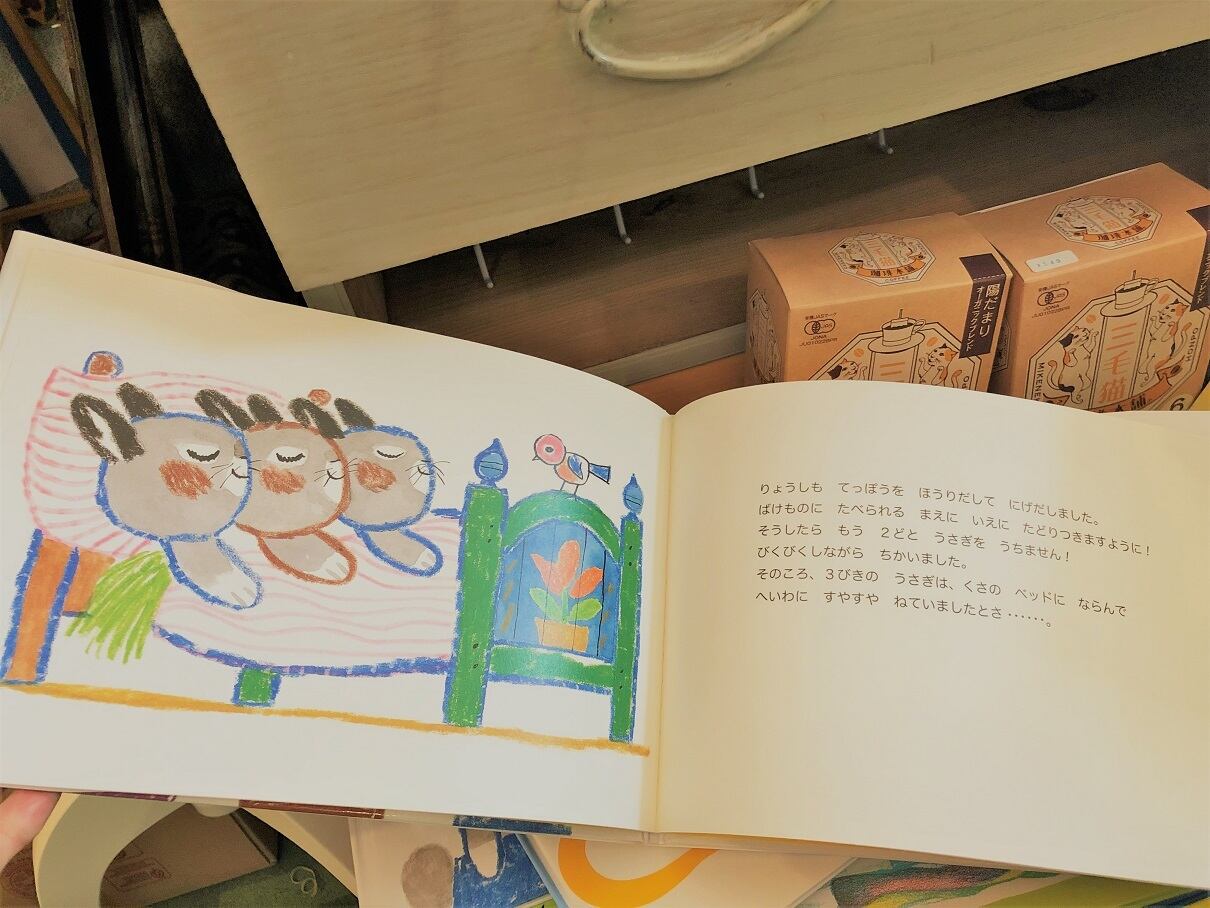 りょうしも　てっぽうを　ほうりだして　にげだしました。
ばけものに　たべられる　まえに　いえに　たどりつきますように！
そうしたら　もう　２どと　うさぎを　うちません！
びくびくしながら　ちかいました。
そのころ、３びきの　うさぎは、くさの　ベッドに　ならんで
へいわに　すやすや　ねていましたとさ……。
三毛猫
珈琲本舗
COFFEE
有機JASマーク
JAS
JONA
陽だまり
オーガニックブレンド
三
三毛猫
有機JASマーク
JAS
JONA
三毛猫
MIKENE
6